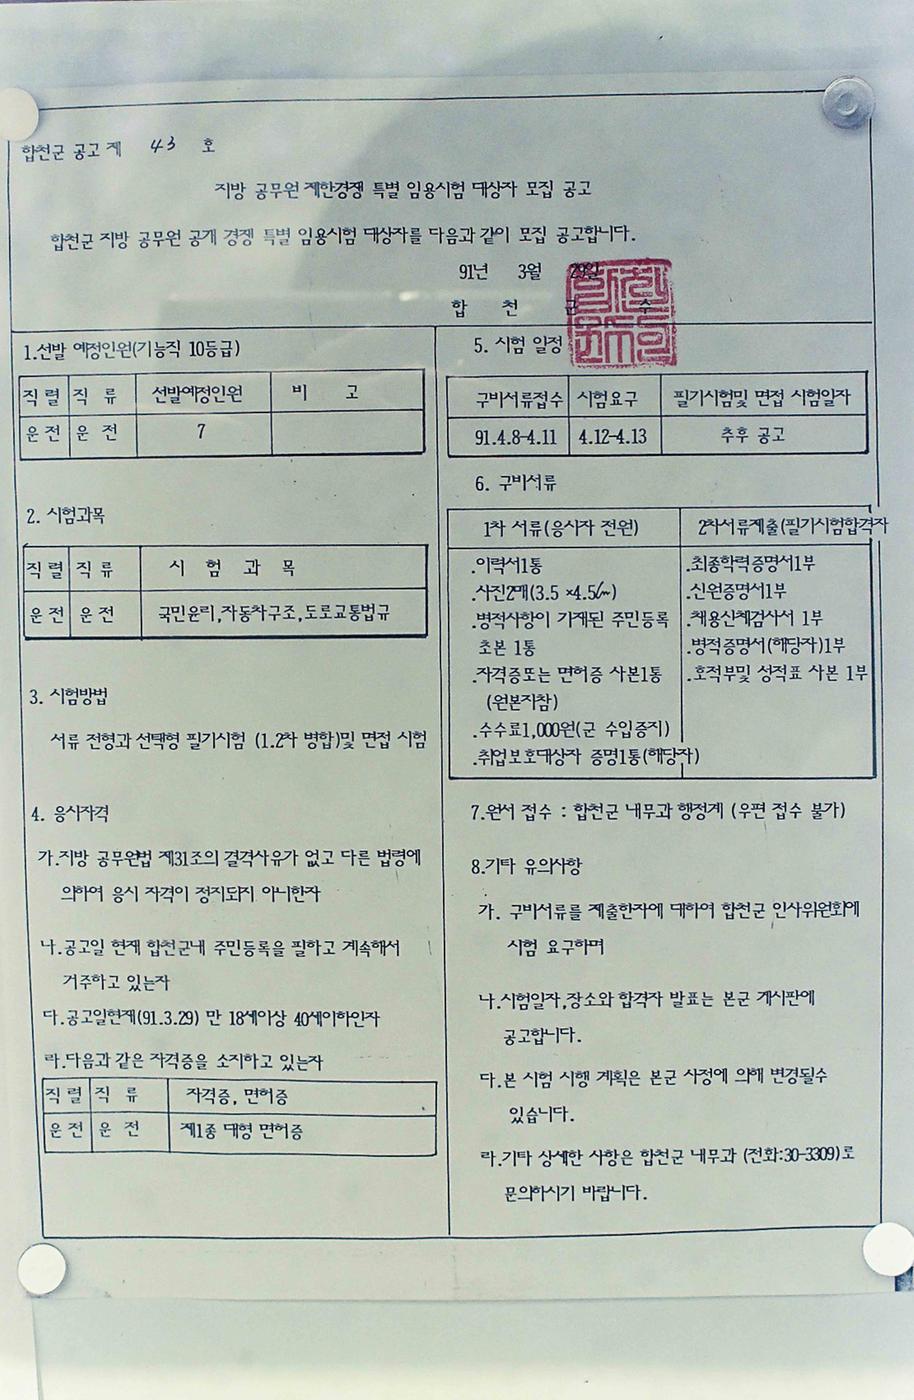 합천군 공고 제 43 호
지방 공무원 제한경쟁 특별 임용시험 대상자 모집 공고
합천군 지방 공무원 공개 경쟁 특별 임용시험 대상자를 다음과 같이 모집 공고합니다.
91년 3월 29일
합 천 군 수
1.선발 예정인원(기능직 10등급)
직 렬 직 류 선발예정인원 비 고
운 전 운 전 7
2. 시험과목
직 렬 직 류 시 험 과 목
운 전 운 전 국민윤리,자동차구조,도로교통법규
3. 시험방법
서류 전형과 선택형 필기시험 (1.2차 병합)및 면접 시험
4. 응시자격
가.지방 공무원법 제31조의 결격사유가 없고 다른 법령에
의하여 응시 자격이 정지되지 아니한자
나.공고일 현재 합천군내 주민등록을 필하고 계속해서
거주하고 있는자
다.공고일현재(91.3.29) 만 18세이상 40세이하인자
라.다음과 같은 자격증을 소지하고 있는자
직 렬 직 류 자격증, 면허증
운 전 운 전 제1종 대형 면허증
5. 시험 일정
구비서류접수 시험요구 필기시험및 면접 시험일자
91.4.8-4.11 4.12-4.13 추후 공고
6. 구비서류
1차 서류(응시자 전원) 2차서류제출(필기시험합격자
.이력서1통
.사진2매(3.5 ×4.5㎝)
.병적사항이 기재된 주민등록
초본 1통
.자격증또는 면허증 사본1통
(원본지참)
.수수료1,000원(군 수입증지)
.취업보호대상자 증명1통(해당자)
.최종학력증명서1부
.신원증명서1부
.채용신체검사서 1부
.병적증명서(해당자)1부
.호적부및 성적표 사본 1부
7.원서 접수 : 합천군 내무과 행정계 (우편 접수 불가)
8.기타 유의사항
가. 구비서류를 제출한자에 대하여 합천군 인사위원회에
시험 요구하며
나.시험일자,장소와 합격자 발표는 본군 게시판에
공고합니다.
다.본 시험 시행 계획은 본군 사정에 의해 변경될수
있습니다.
라.기타 상세한 사항은 합천군 내무과 (전화:30-3309)로
문의하시기 바랍니다.